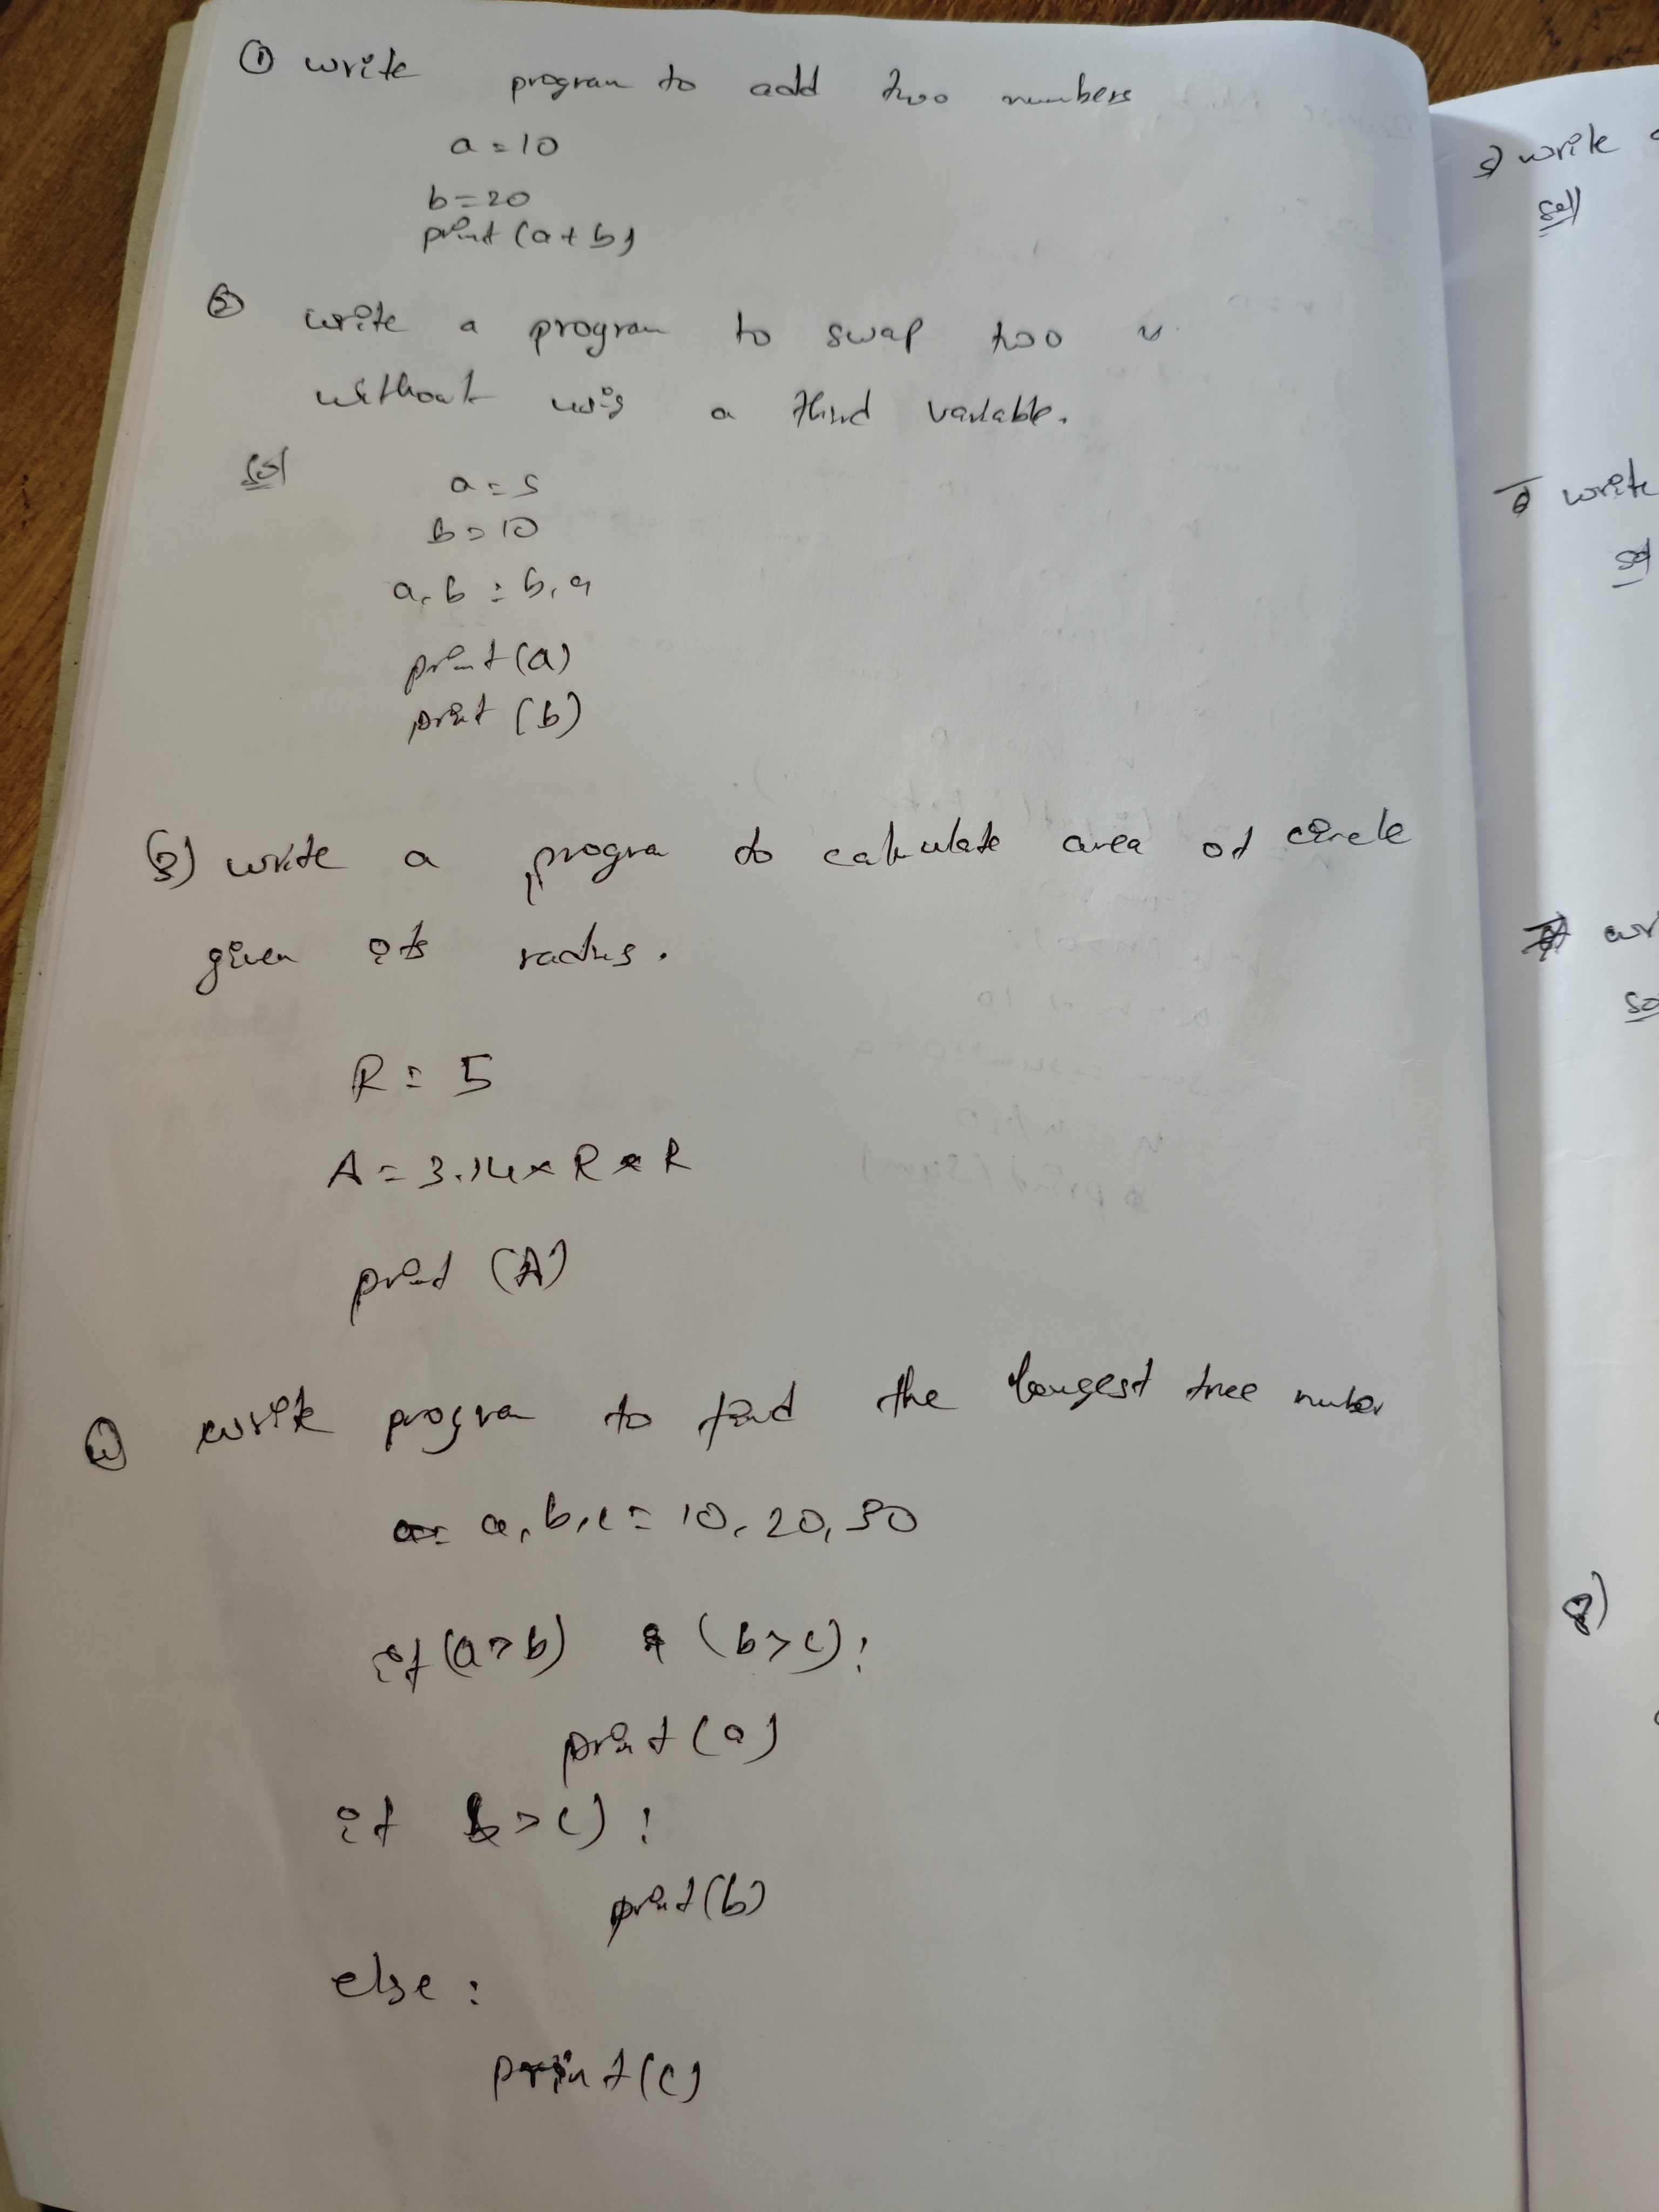 ① write program to add two numbers
a = 10
b = 20
print (a + b)
② write a program to swap two
without a third variable.
sol
a = 5
b = 10
a, b = b, a
print (a)
print (b)
(3) write a progra to calculate area of circle
given its radius.
R = 5
A = 3.14 * R * R
print (A)
④ write program to find the longest tree
a, b, c = 10, 20, 30
if (a > b) & (b > c):
print (a)
if b > c) :
print (b)
else :
print (c)
5) write
sol
write
sol
wr
so
8)